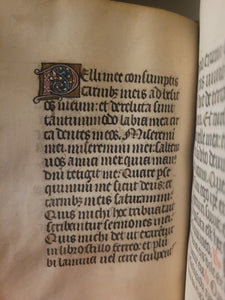 Pelli mee consumptis
carnibus meis adhesit
os meum: et derelicta sunt
tantummodo labia mea cir
ca dentes meos. Miseremini
mei miseremini mei saltem
vos amici mei quia manus
dni tetigit me. Quare pse
quimini me sicut deus: et
carnibus meis saturamini.
Quis michi hoc tribuat ut
scribantur sermones mei.
Quis michi det ut exarentur
in libro stilo ferreo: et plū
bi lamina vel certe sculpant